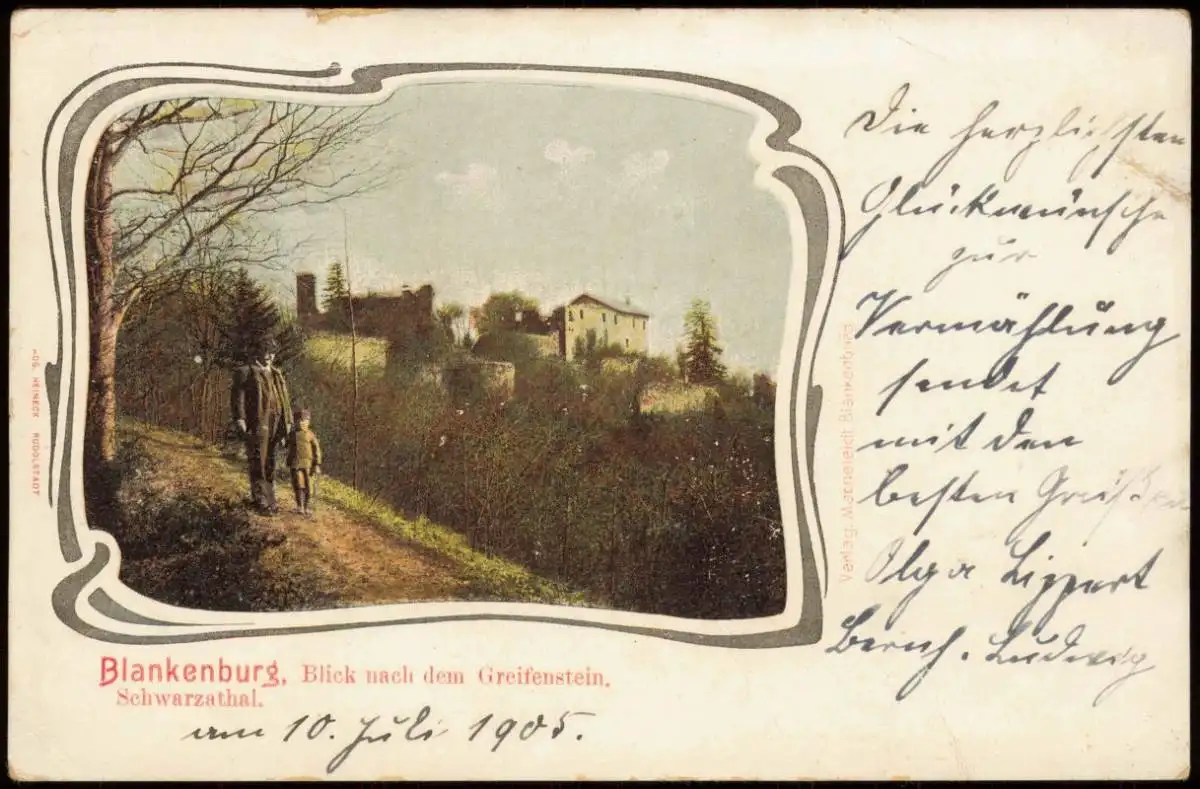 Die herzlichsten
Glückwünsche
zur
Vermählung
sendet
mit den
besten Grüßen
Olga Lippert
Bernh. Ludwig
Blankenburg, Blick nach dem Greifenstein.
Schwarzathal.
am 10. Juli 1905.
Verlag: Blankenburg
HEINECK RUDOLSTADT